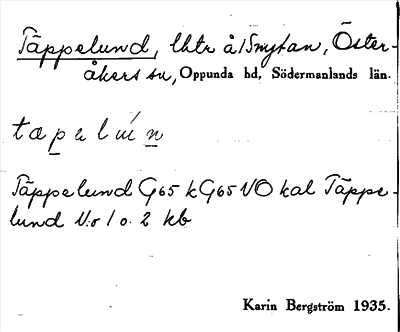 Täppelund, lhtr å/Smytan, Öster-
åkers sn, Oppunda hd, Södermanlands län.
tæpelún
Täppelund G65 k G65 NO kal Täppe-
lund N:o 1 o. 2 kb
Karin Bergström 1935.